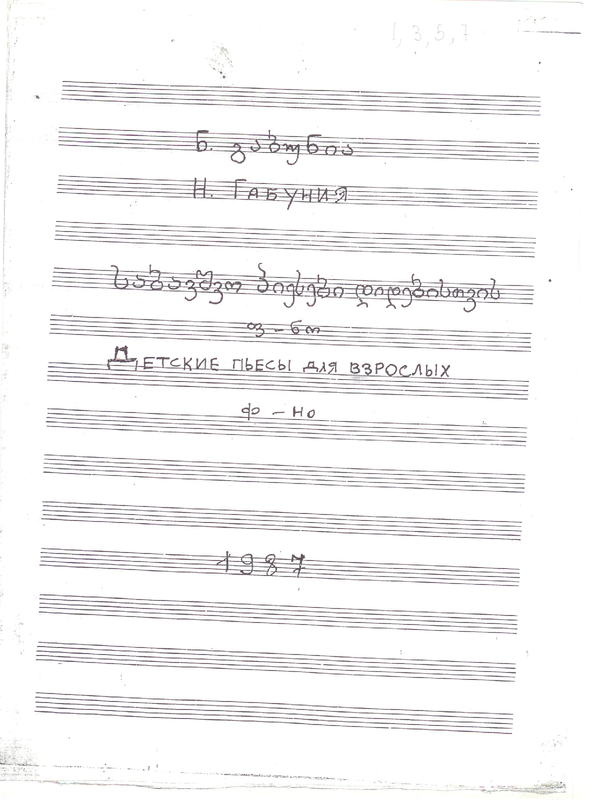 1, 3, 5, 7
ნ. გაბუნია
Н. ГАБУНИЯ
საბავშვო პიესები დიდებისთვის
ფ – ნო
ДЕТСКИЕ ПЬЕСЫ ДЛЯ ВЗРОСЛЫХ
Ф – НО
1987